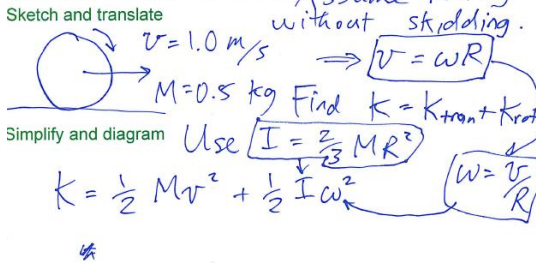 Sketch and translate
without skidding.
v = 1.0 m/s
⇒ v = ωR
M = 0.5 kg Find K = Ktran + Krot
Simplify and diagram Use I = 2/3 MR²
K = 1/2 Mv² + 1/2 Iω² ω = v/R